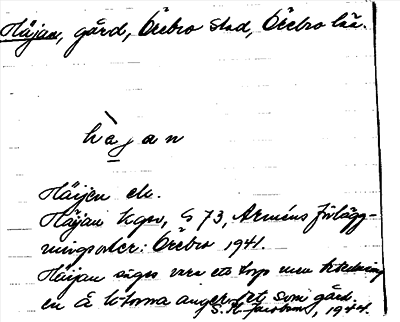 Häjan, gård, Örebro stad, Örebro län.
hàjan
Häijen ek.
Häjan kgsv, S 73, Arméns förlägg-
ningsorter: Örebro 1941.
Häijan säges vara ett torp men
en å angivet som gård.
1944.